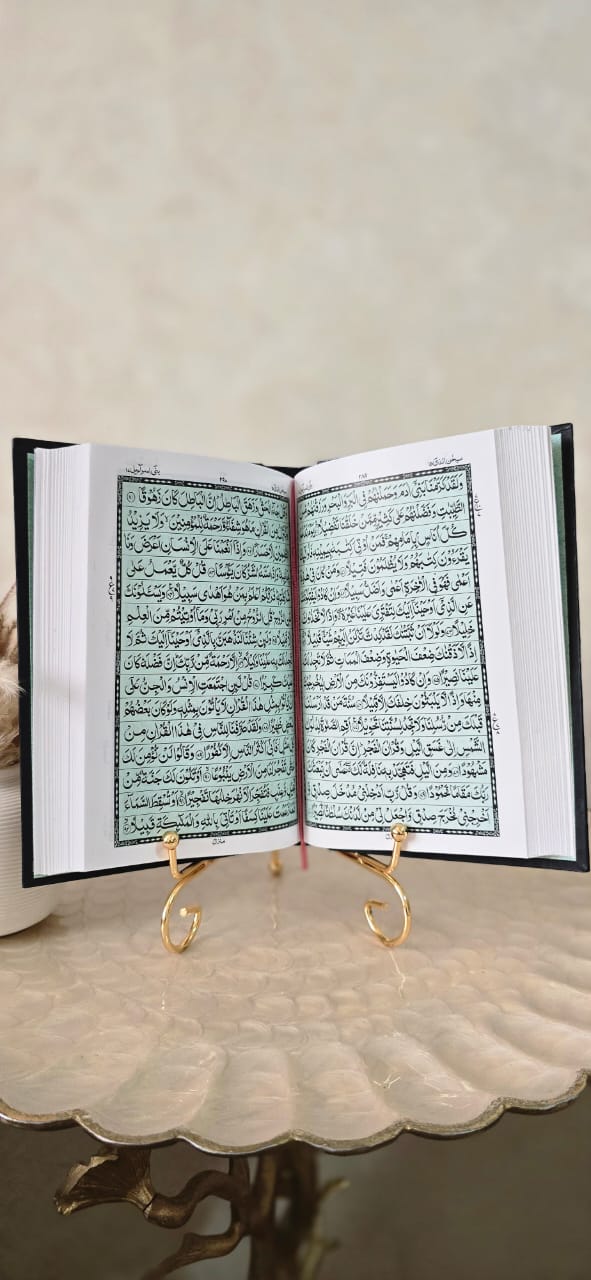 سبحٰن الذی ۱۵
وَلَقَدْ كَرَّمْنَا بَنِيْٓ اٰدَمَ وَحَمَلْنٰهُمْ فِي الْبَرِّ وَالْبَحْرِ وَرَزَقْنٰهُمْ
الطَّيِّبٰتِ وَفَضَّلْنٰهُمْ عَلٰى كَثِيْرٍ مِّمَّنْ خَلَقْنَا تَفْضِيْلًا
كُلَّ اُنَاسٍۭ بِاِمَامِهِمْ ۚ فَمَنْ اُوْتِيَ كِتٰبَهٗ بِيَمِيْنِهٖ
يَقْرَءُوْنَ كِتٰبَهُمْ وَلَا يُظْلَمُوْنَ فَتِيْلًا وَمَنْ كَانَ فِيْ
اَعْمٰى فَهُوَ فِي الْاٰخِرَةِ اَعْمٰى وَاَضَلُّ سَبِيْلًا
عَنِ الَّذِيْٓ اَوْحَيْنَآ اِلَيْكَ لِتَفْتَرِيَ عَلَيْنَا غَيْرَهٗ ۖ وَاِذًا لَّاتَّخَذُوْكَ
خَلِيْلًا وَلَوْلَآ اَنْ ثَبَّتْنٰكَ لَقَدْ كِدْتَّ تَرْكَنُ اِلَيْهِمْ شَيْـًٔا قَلِيْلًا
اِذًا لَّاَذَقْنٰكَ ضِعْفَ الْحَيٰوةِ وَضِعْفَ الْمَمَاتِ ثُمَّ لَا تَجِدُ
عَلَيْنَا نَصِيْرًا وَاِنْ كَادُوْا لَيَسْتَفِزُّوْنَكَ مِنَ الْاَرْضِ
مِنْهَا وَاِذًا لَّا يَلْبَثُوْنَ خِلٰفَكَ اِلَّا قَلِيْلًا سُنَّةَ مَنْ قَدْ اَرْسَلْنَا
قَبْلَكَ مِنْ رُّسُلِنَا وَلَا تَجِدُ لِسُنَّتِنَا تَحْوِيْلًا اَقِمِ الصَّلٰوةَ
الشَّمْسِ اِلٰى غَسَقِ الَّيْلِ وَقُرْاٰنَ الْفَجْرِ ؕ اِنَّ قُرْاٰنَ الْفَجْرِ كَانَ
مَشْهُوْدًا وَمِنَ الَّيْلِ فَتَهَجَّدْ بِهٖ نَافِلَةً لَّكَ ۖ عَسٰٓى اَنْ
رَبُّكَ مَقَامًا مَّحْمُوْدًا وَقُلْ رَّبِّ اَدْخِلْنِيْ مُدْخَلَ صِدْقٍ
اَخْرِجْنِيْ مُخْرَجَ صِدْقٍ وَّاجْعَلْ لِّيْ مِنْ لَّدُنْكَ سُلْطٰنًا
بنی اسرآءیل ۱۷
جَآءَ الْحَقُّ وَزَهَقَ الْبَاطِلُ ؕ اِنَّ الْبَاطِلَ كَانَ زَهُوْقًا
مِنَ الْقُرْاٰنِ مَا هُوَ شِفَآءٌ وَّرَحْمَةٌ لِّلْمُؤْمِنِيْنَ ۙ وَلَا يَزِيْدُ
اِلَّا خَسَارًا وَاِذَآ اَنْعَمْنَا عَلَى الْاِنْسَانِ اَعْرَضَ وَنَاٰ
مَسَّهُ الشَّرُّ كَانَ يَـُٔوْسًا قُلْ كُلٌّ يَّعْمَلُ عَلٰى
فَرَبُّكُمْ اَعْلَمُ بِمَنْ هُوَ اَهْدٰى سَبِيْلًا وَيَسْـَٔلُوْنَكَ
الرُّوْحِ ؕ قُلِ الرُّوْحُ مِنْ اَمْرِ رَبِّيْ وَمَآ اُوْتِيْتُمْ مِّنَ الْعِلْمِ
وَلَئِنْ شِئْنَا لَنَذْهَبَنَّ بِالَّذِيْٓ اَوْحَيْنَآ اِلَيْكَ ثُمَّ لَا
بِهٖ عَلَيْنَا وَكِيْلًا اِلَّا رَحْمَةً مِّنْ رَّبِّكَ ؕ اِنَّ فَضْلَهٗ كَانَ
كَبِيْرًا قُلْ لَّئِنِ اجْتَمَعَتِ الْاِنْسُ وَالْجِنُّ عَلٰٓى
بِمِثْلِ هٰذَا الْقُرْاٰنِ لَا يَاْتُوْنَ بِمِثْلِهٖ وَلَوْ كَانَ بَعْضُهُمْ
ظَهِيْرًا وَلَقَدْ صَرَّفْنَا لِلنَّاسِ فِيْ هٰذَا الْقُرْاٰنِ مِنْ
مَثَلٍ ۡ فَاَبٰٓى اَكْثَرُ النَّاسِ اِلَّا كُفُوْرًا وَقَالُوْا لَنْ نُّؤْمِنَ لَكَ
تَفْجُرَ لَنَا مِنَ الْاَرْضِ يَنْۢبُوْعًا اَوْ تَكُوْنَ لَكَ جَنَّةٌ مِّنْ
وَّعِنَبٍ فَتُفَجِّرَ الْاَنْهٰرَ خِلٰلَهَا تَفْجِيْرًا اَوْ تُسْقِطَ السَّمَآءَ
زَعَمْتَ عَلَيْنَا كِسَفًا اَوْ تَاْتِيَ بِاللّٰهِ وَالْمَلٰٓئِكَةِ قَبِيْلًا